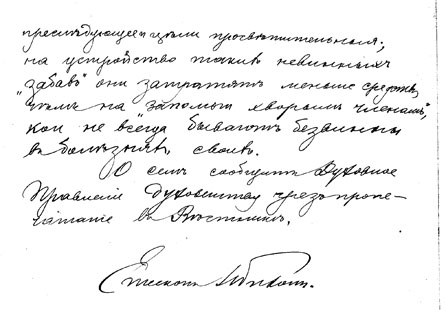 преслѣдующее и цѣли просвѣтительныя;
на устройство такихъ невинныхъ
„забавъ" они затратятъ меньше средствъ,
чѣмъ на „запомыт хворымъ членамъ",
кои не всегда бываютъ безвинны
въ болѣзняхъ своихъ.
О семъ сообщитъ Духовное
Правленіе духовенству чрезъ пропе-
чатаніе въ Вѣстникѣ.
Епископъ